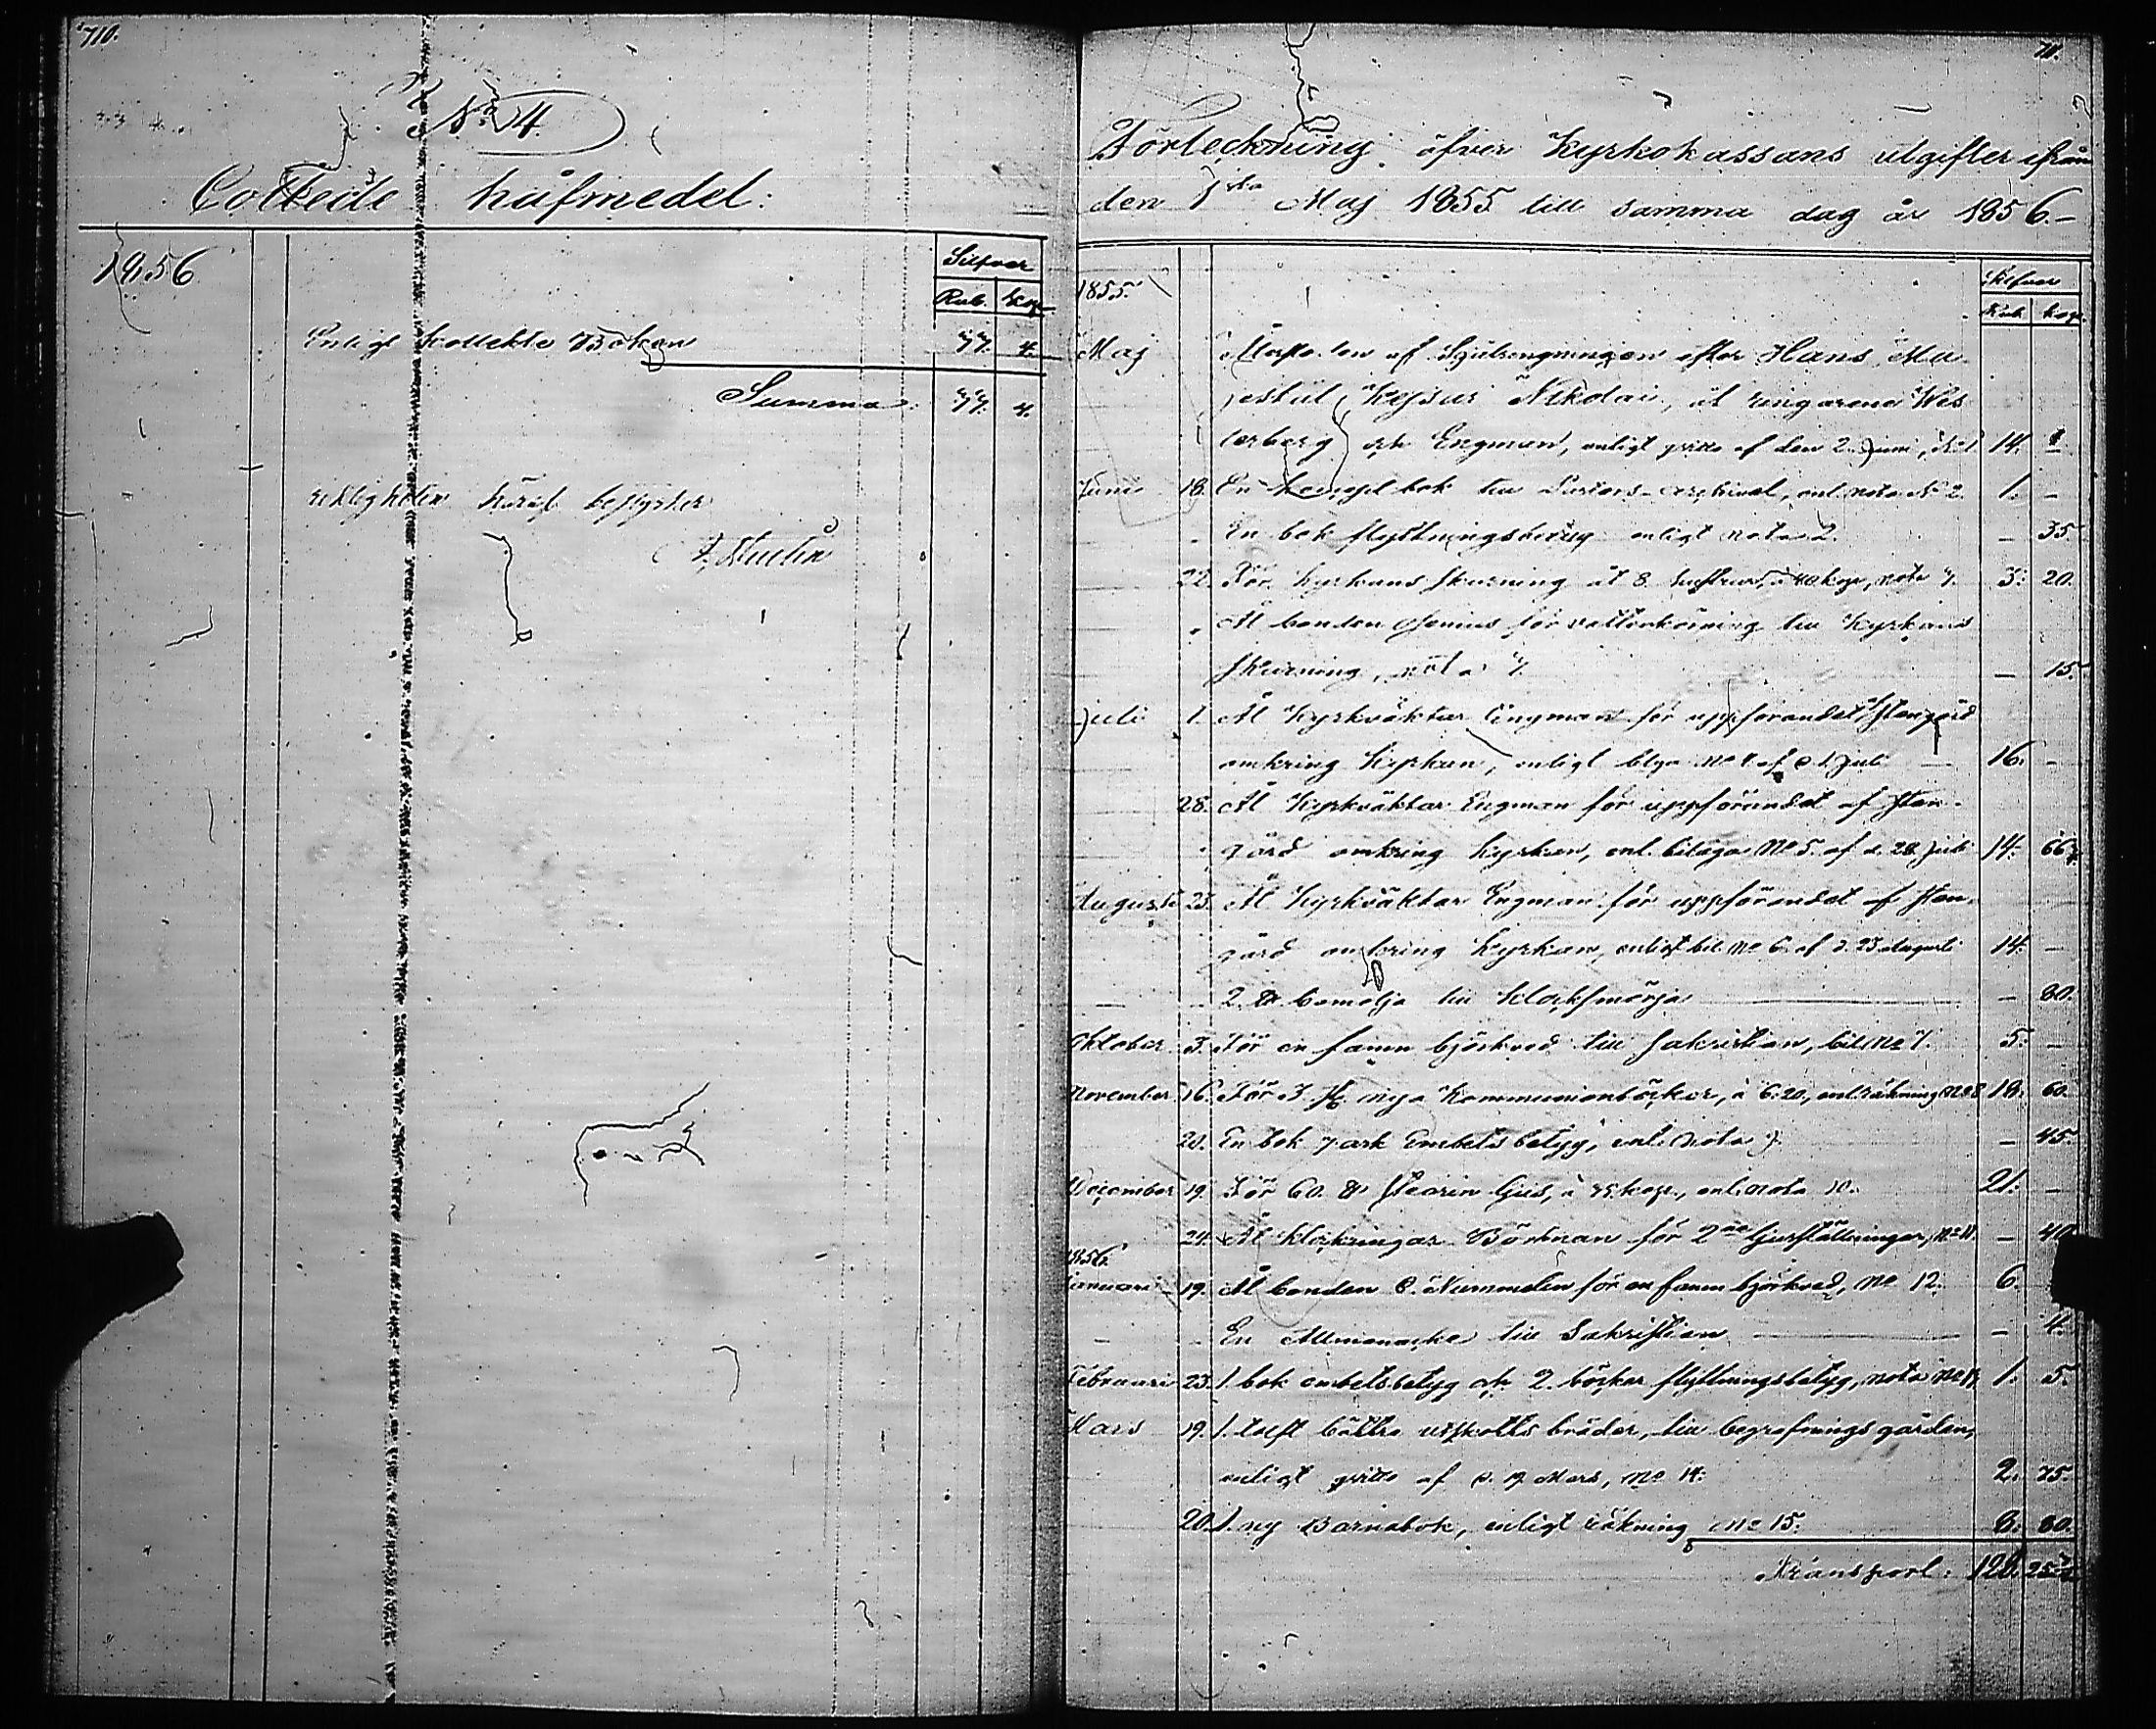 710.
No 4.
Collecte håfmedel:
1856
Silfver
Rub. kop.
Enligt kollekte Boken 77. 4.
Summa 77. 4.
riktigheten häraf bestyrker
711.
Förteckning öfver Kyrkokassans utgifter ifrån
den 1sta Maj 1855 till samma dag år 1856.-
Silfver
Rub kop.
1855.
Maj af Själringningen efter Hans Ma-
jestät Kejsar Nikolai, åt ringarene Wes-
terberg och Engman, enligt qvitto af den 2. Juni, No 1 14.
Juni 18. En bok till Pastors-archivet, enl. nota No 2. 1. -
" En bok flyttningsbetyg enligt nota 2. - 35.
22. För kyrkans skurning åt 8. hustrur, à 40 kop, nota 3. 3. 20.
" Åt bonden för vattenkörning till Kyrkans
skurning, nota 3. - 15.
Juli 1. Åt Kyrkväktar Engman för uppförandet Stengärd
omkring Kyrkan, enligt bilga No 4 af d 1. Juli 16. -
28. Åt Kyrkväktar Engman för uppförandet af Sten-
gärd omkring kyrkan, enl. bilaga No 5. af d. 28. Juli 14.
Augusti 23. Åt Kyrkväktar Engman för uppförandet af Sten-
gärd omkring Kyrkan, enligt bil. No 6. af d. 23 Augusti 14. -
2. ℔ bomolja till klocksmörja - 80.
Oktober 3. För en famn björkved till Sakristian, bil. No 7. 5. -
November 16. För 3. st. nya Kommunionböcker, à 6: 20, enl. räkning No 8 18. 60.
20. En bok 7 ark Embetsbetyg, enl. Nota 9. - 45
December 19. För 60. ℔ Stearin ljus, à 35. kop., enl. nota 10. 21. -
24. Åt klockringar Björkman för 2ne ljusställningar, No 11. - 40.
1856.
Januari 19. Åt bonden E. Nummelin för en famn björkved, No 12. 6.
En Allmanacka till Sakristian - 4.
Februari 23. 1. bok embetsbetyg och 2. böcker flyttningsbetyg, nota No 13. 1. 5.
Mars 19. 1. tolft bättre utskotts bräder, till begrafningsgården,
enligt qvitto af d. 19 Mars, No 14: 2. 75.
20. 1. ny Barnabok, enligt räkning No 15. 8. 80.
Transport: 128.